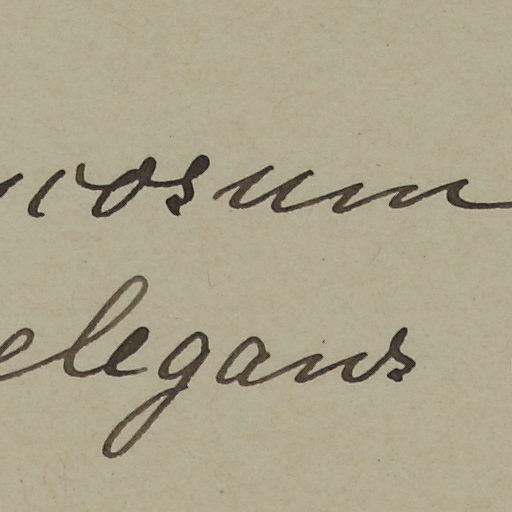 icosum
elegans